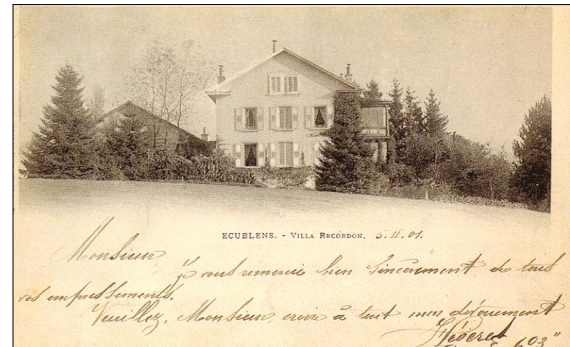 ECUBLENS. - VILLA RECORDON, 5.11.01.
Monsieur
je vous remercie bien sincèrement de tous
vos empressements.
Veuillez, Monsieur, croire à tout mon dévouement